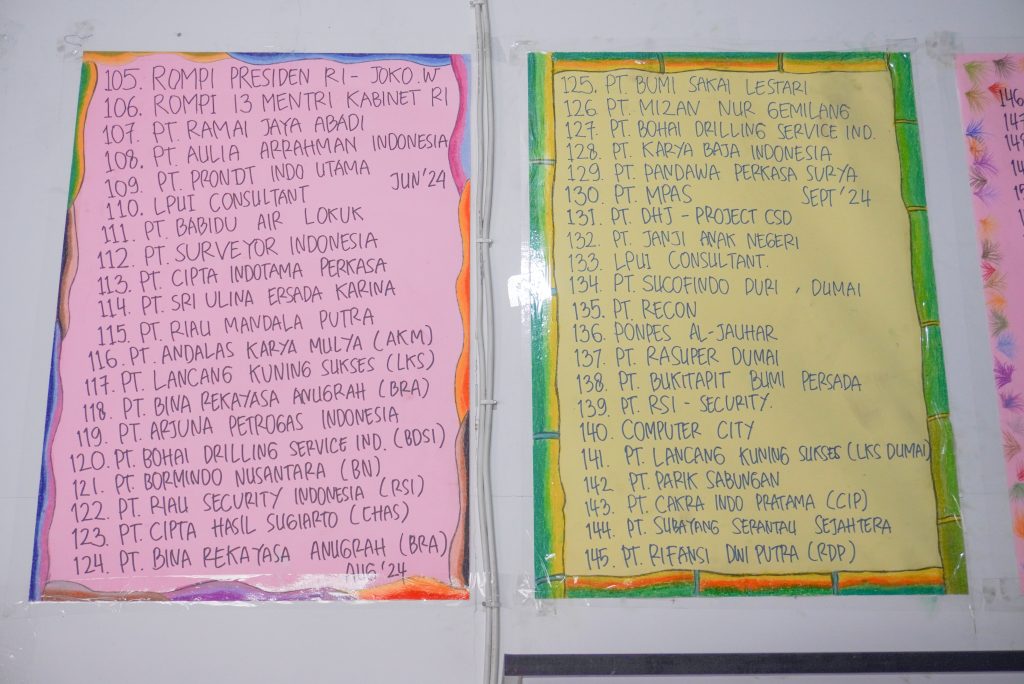 105. ROMPI PRESIDEN RI - JOKO.W
106. ROMPI 13 MENTRI KABINET RI
107. PT. RAMAI JAYA ABADI
108. PT. AULIA ARRAHMAN INDONESIA
109. PT. PRONDT INDO UTAMA
JUN'24
110. LPUI CONSULTANT
111. PT. BABIDU AIR LOKUK
112. PT. SURVEYOR INDONESIA
113. PT. CIPTA INDOTAMA PERKASA
114. PT. SRI ULINA ERSADA KARINA
115. PT. RIAU MANDALA PUTRA
116. PT. ANDALAS KARYA MULYA (AKM)
117. PT. LANCANG KUNING SUKSES (LKS)
118. PT. BINA REKAYASA ANUGRAH (BRA)
119. PT. ARJUNA PETROGAS INDONESIA
120. PT. BOHAI DRILLING SERVICE IND. (BDSI)
121. PT. BORMINDO NUSANTARA (BN)
122. PT. RIAU SECURITY INDONESIA (RSI)
123. PT. CIPTA HASIL SUGIARTO (CHAS)
124. PT. BINA REKAYASA ANUGRAH (BRA)
AUG'24
125. PT. BUMI SAKAI LESTARI
126. PT. MIZAN NUR GEMILANG
127. PT. BOHAI DRILLING SERVICE IND.
128. PT. KARYA BAJA INDONESIA
129. PT. PANDAWA PERKASA SURYA
130. PT. MPAS SEPT'24
131. PT. DHJ - PROJECT CSD
132. PT. JANJI ANAK NEGERI
133. LPUI CONSULTANT.
134. PT. SUCOFINDO DURI, DUMAI
135. PT. RECON
136. PONPES AL-JAUHAR
137. PT. RASUPER DUMAI
138. PT. BUKITAPIT BUMI PERSADA
139. PT. RSI - SECURITY.
140. COMPUTER CITY
141. PT. LANCANG KUNING SUKSES (LKS DUMAI)
142. PT. PARIK SABUNGAN
143. PT. CAKRA INDO PRATAMA (CIP)
144. PT. SUBAYANG SERANTAU SEJAHTERA
145. PT. RIFANSI DWI PUTRA (RDP)
146
147